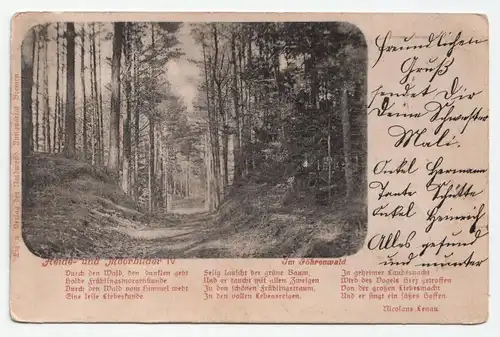 Freundlichen
Gruß
sendet Dir
Deine Schwester
Mali.
Onkel Hermann
Tante Schütte
Onkel Heinrich
Alles gesund
und munter
Heide- und Moorbilder IV
Im Göhrenwald.
Durch den Wald, den dunklen geht
Holde Frühlingsmorgenstunde
Durch den Wald vom Himmel weht
Eine leise Liebeskunde.
Selig lauscht der grüne Baum,
Und er taucht mit allen Zweigen
In den schönen Frühlingstraum,
In den vollen Lebensreigen.
In geheimer Laubesnacht
Wird des Vogels Herz getroffen
Von der großen Liebesmacht
Und er singt ein süßes Hoffen
Nicolaus Lenau.
Verlag des
Bremen